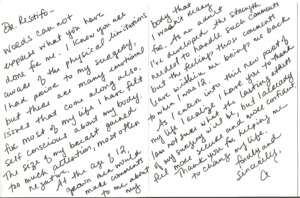 Dr Restifo-
Words can not
express what you have
done for me. I know you all
aware of the physical limitations
I had prior to my surgery,
but there are many emotional
issues that come along also.
for most of my life I have felt
self conscious about my body.
The size of my breast gained
too much attention, most often
negative. At the age of 12,
grown men would
make comments
to me about
my
body that
I wasn't ready
for. As an adult
I've developed the strength
needed to handle such comments
but the feelings those comments
leave within me bring me back
to when I was 12.
As I enter into this new part of
my life I have you to thank
I am not sure what the lasting effects
of my surgery will be, but already
feel more secure and more confident.
Thank you for helping me
to change my life.
fondly and
Sincerely,